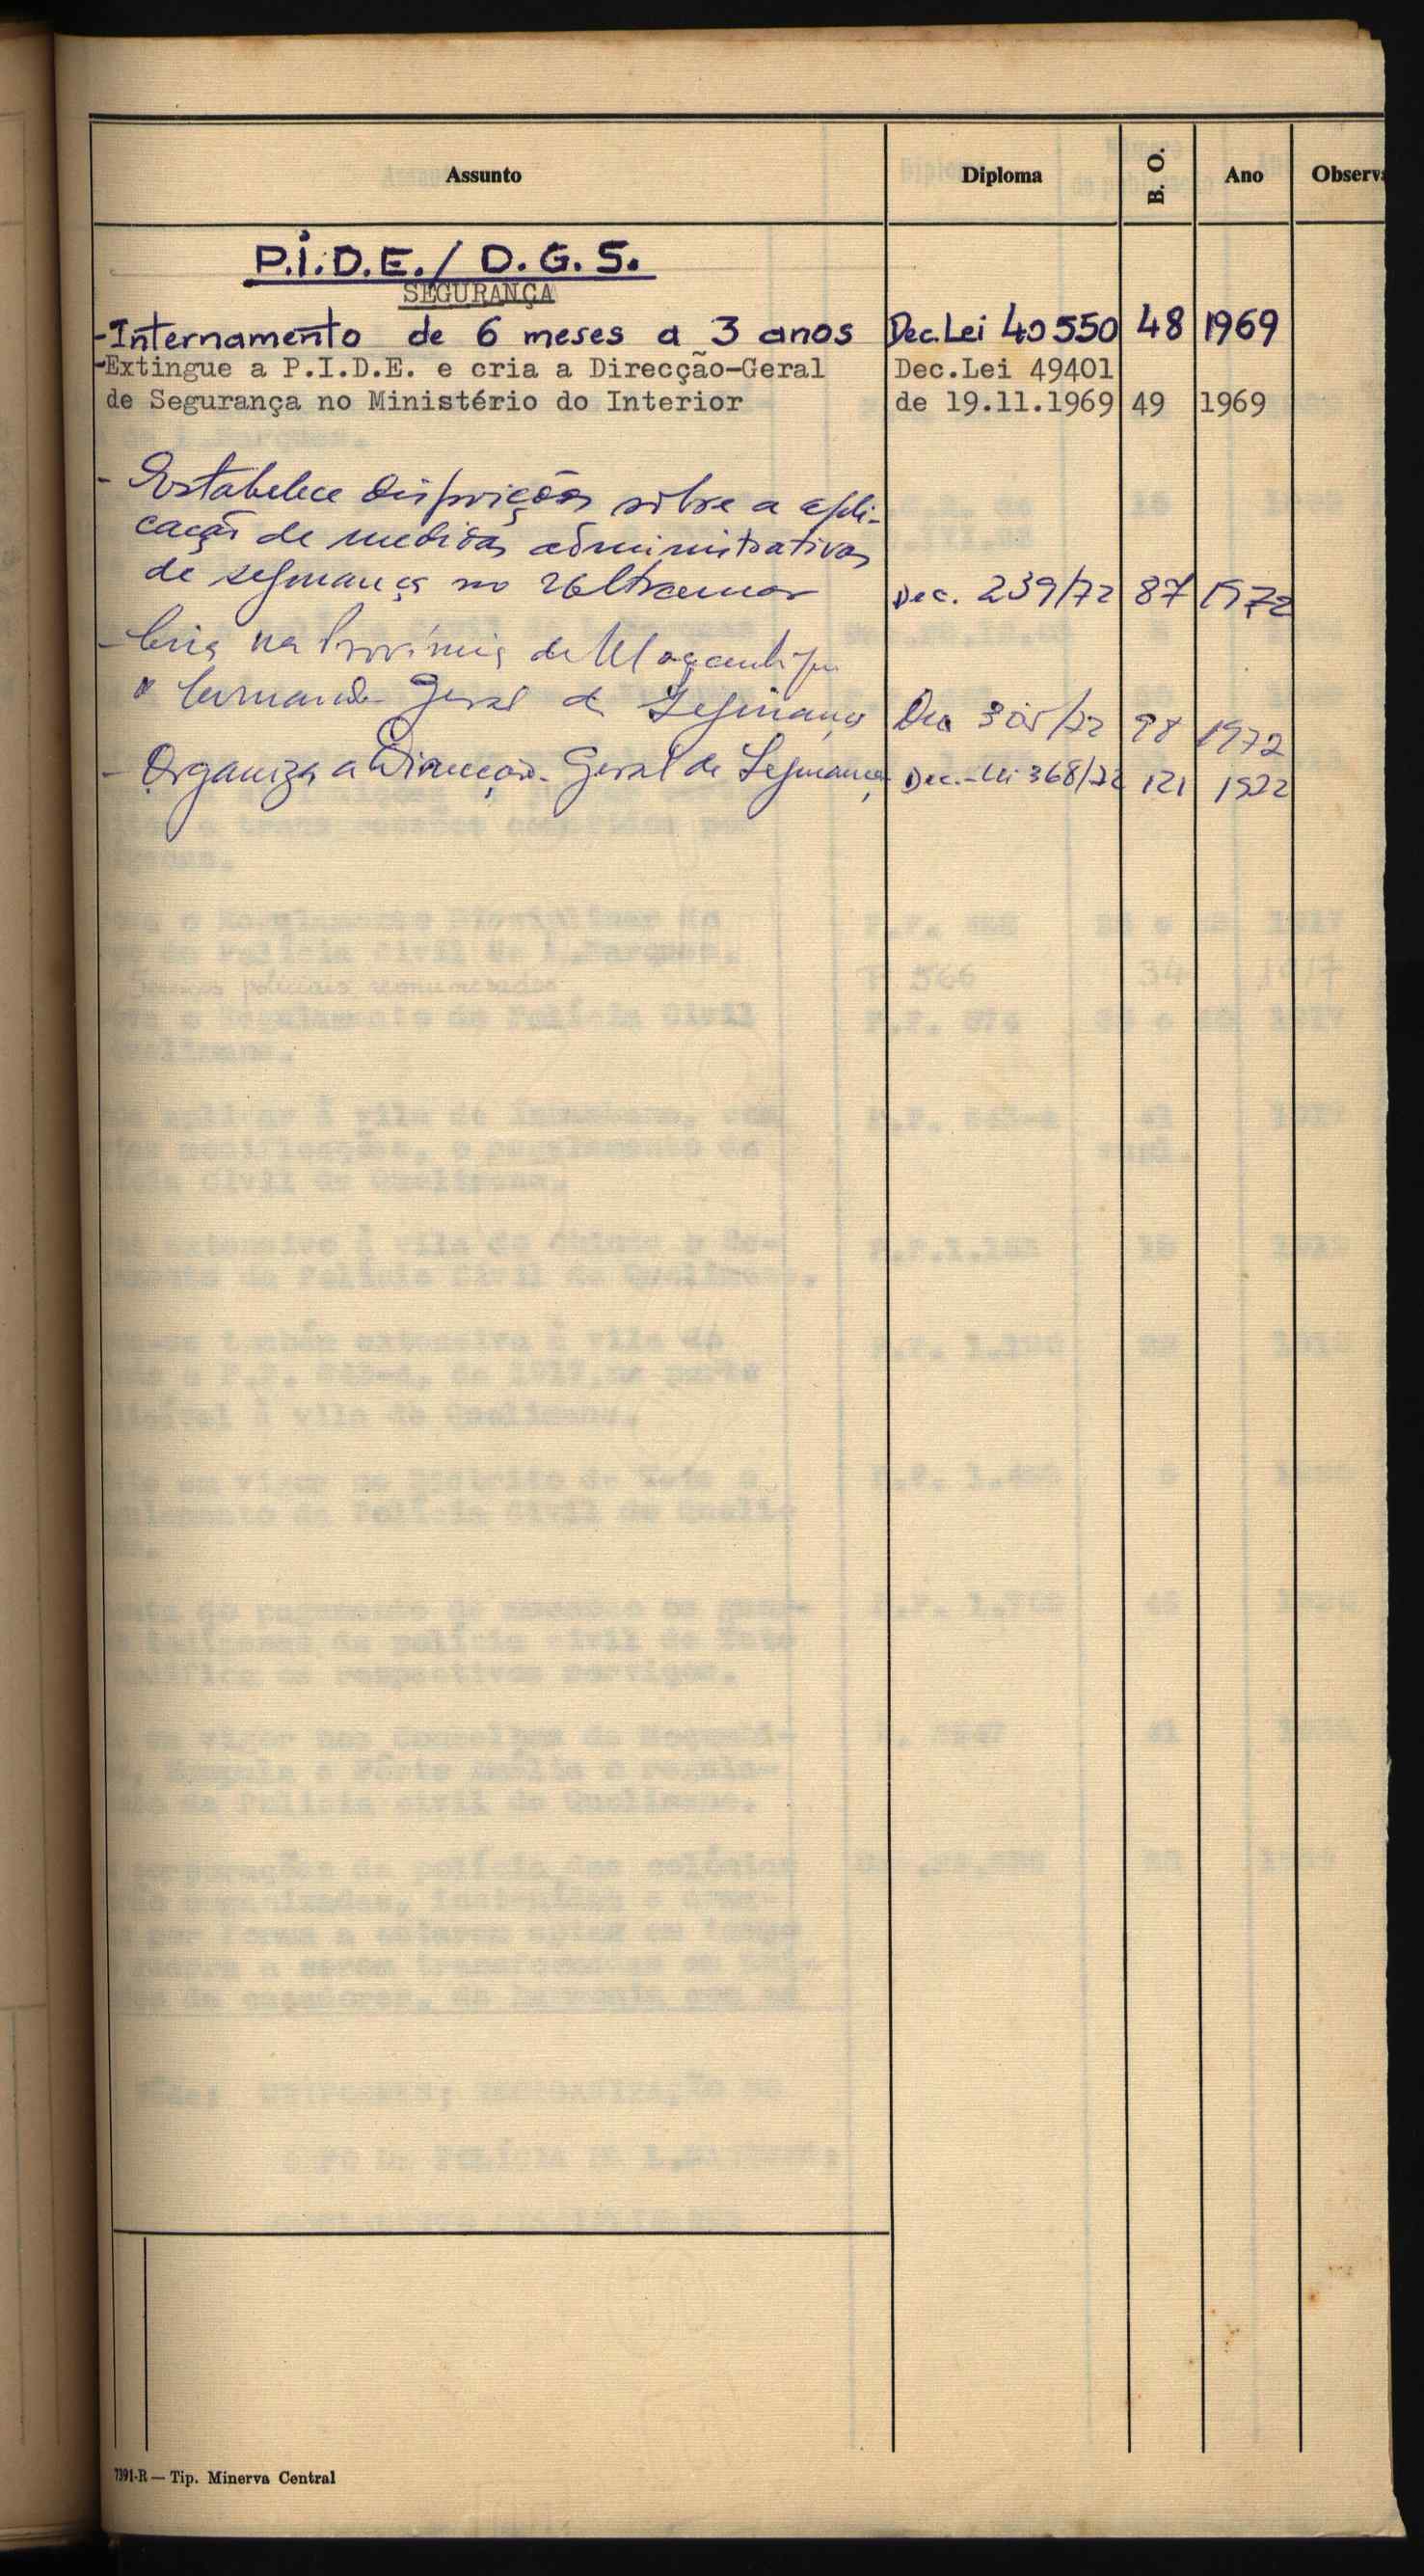 Assunto Diploma B. O. Ano Observ
P.I.D.E. / D.G.S.
SEGURANÇA
-Internamento de 6 meses a 3 anos Dec.Lei 40550 48 1969
-Extingue a P.I.D.E. e cria a Direcção-Geral Dec.Lei 49401
de Segurança no Ministério do Interior de 19.11.1969 49 1969
- Estabelece disposições sôbre a apli-
cação de medidas administrativas
de segurança no Ultramar Dec. 239/72 87 1972
- Cria na Província de Moçambique
o Comando Geral de Segurança Dec 305/72 98 1972
- Organiza a Direcção-Geral de Segurança Dec.-Lei 368/72 121 1972
7391-R — Tip. Minerva Central